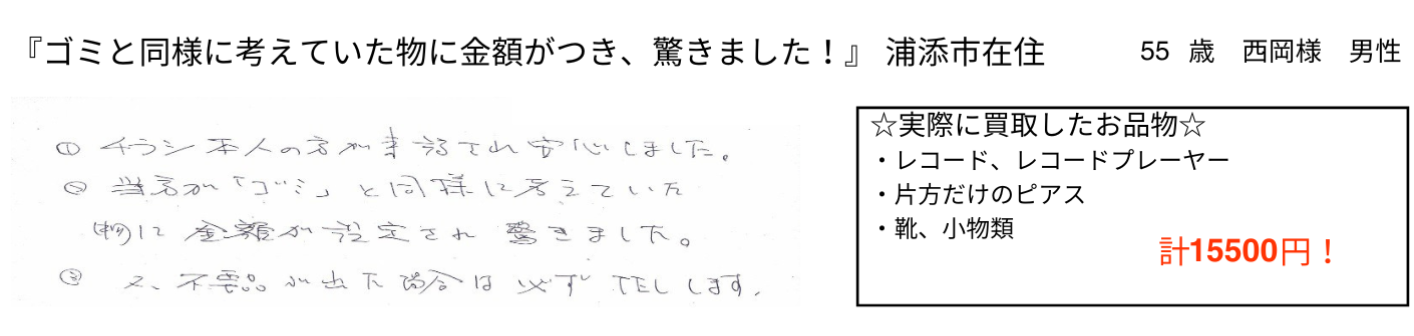 『ゴミと同様に考えていた物に金額がつき、驚きました！』 浦添市在住 55 歳 西岡様 男性
① チラシ本人の方が来訪され安心しました。
② 当方が「ゴミ」と同様に考えていた
物に金額が設定され驚きました。
③ 又、不要品が出た場合は必ずTELします。
☆実際に買取したお品物☆
・レコード、レコードプレーヤー
・片方だけのピアス
・靴、小物類
計15500円！